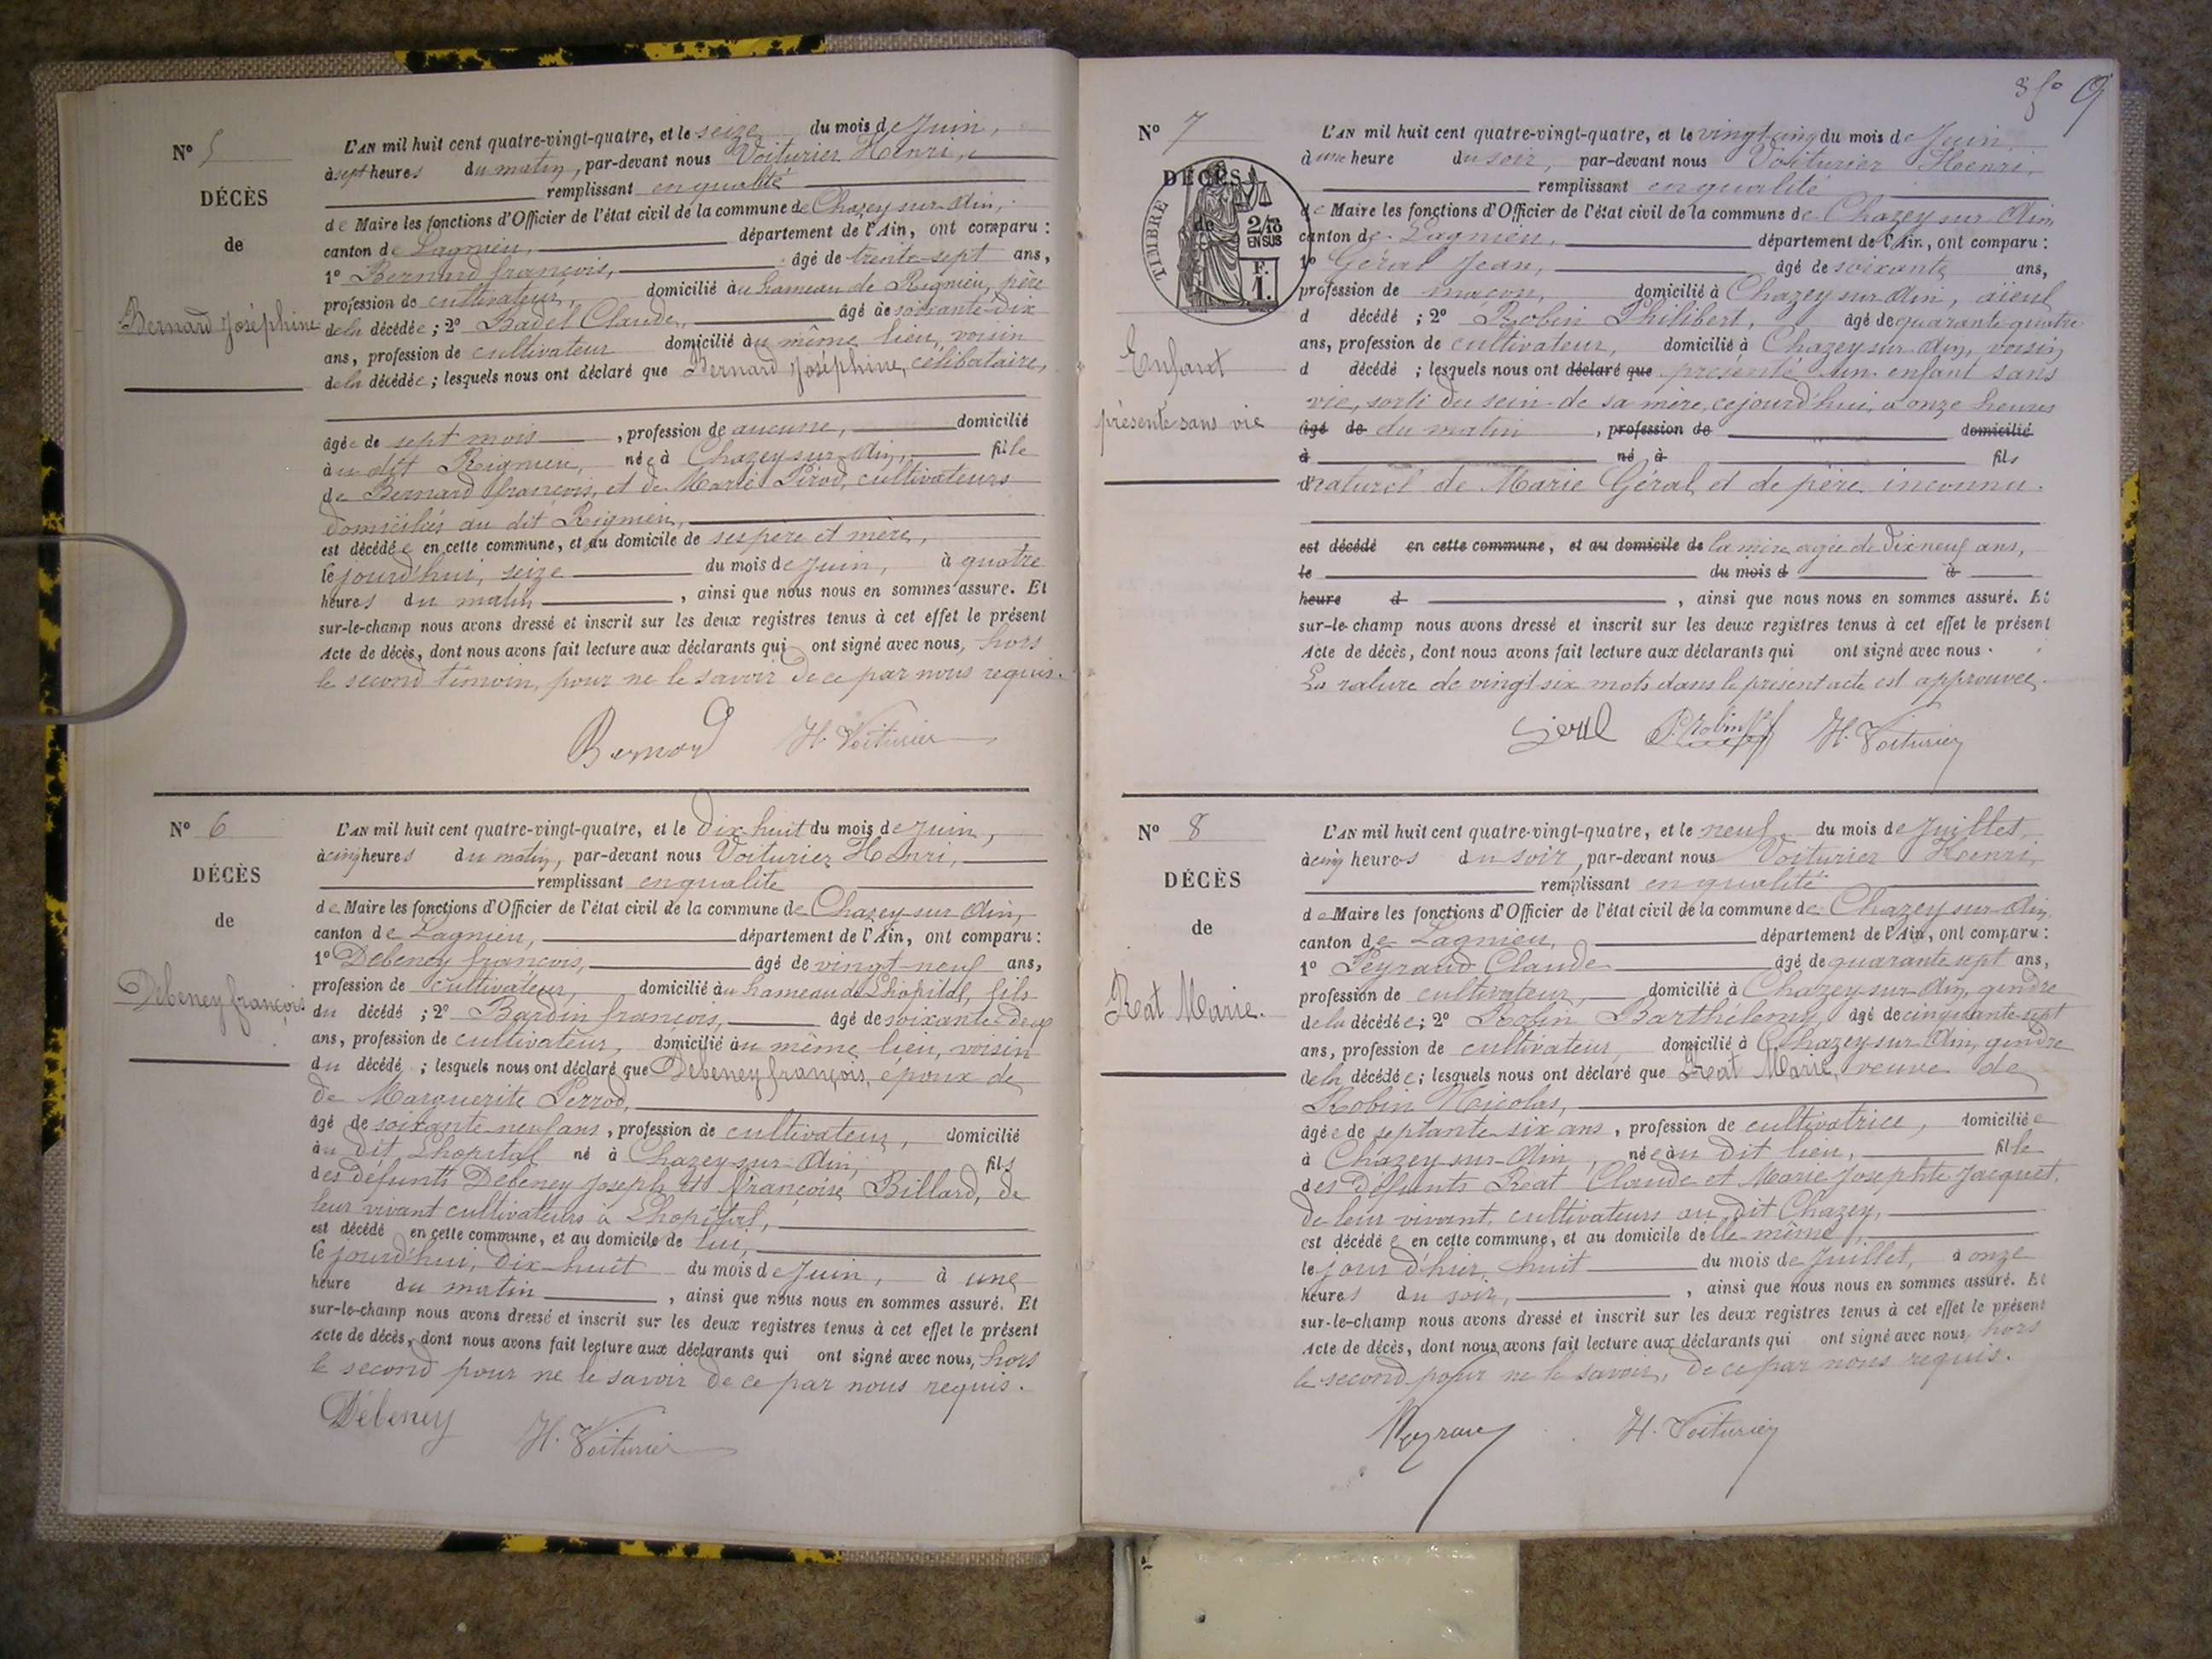 N° 5
DÉCÈS
de
Bernard Joséphine
L'AN mil huit cent quatre-vingt-quatre, et le seize du mois de Juin,
à sept heures du matin, par-devant nous Voiturier Henri,
remplissant en qualité
de Maire les fonctions d'Officier de l'état civil de la commune de Chazey-sur-Ain,
canton de Lagnieu, département de l'Ain, ont comparu :
1° Bernard françois, âgé de trente-sept ans,
profession de cultivateur, domicilié au hameau de Rignieu, père
de la décédée ; 2° Badel Claude, âgé de soixante-dix
ans, profession de cultivateur domicilié au même lieu, voisin
de la décédée ; lesquels nous ont déclaré que Bernard Joséphine, célibataire,
âgée de sept mois, profession de aucune, domicilié
au dit Rignieu, née à Chazey-sur-Ain, fille
de Bernard françois, et de Marie Pérod, cultivateurs
domiciliés au dit Rignieu,
est décédée en cette commune, et au domicile de ses père et mère,
le jourd'hui, seize du mois de Juin, à quatre
heures du matin, ainsi que nous nous en sommes assuré. Et
sur-le-champ nous avons dressé et inscrit sur les deux registres tenus à cet effet le présent
Acte de décès, dont nous avons fait lecture aux déclarants qui ont signé avec nous, hors
le second témoin, pour ne le savoir de ce par nous requis.
Bernard H. Voiturier
N° 6
DÉCÈS
de
Debeney françois
L'AN mil huit cent quatre-vingt-quatre, et le Dix-huit du mois de Juin,
à cinq heures du matin, par-devant nous Voiturier Henri,
remplissant en qualité
de Maire les fonctions d'Officier de l'état civil de la commune de Chazey-sur-Ain,
canton de Lagnieu, département de l'Ain, ont comparu :
1° Debeney françois, âgé de vingt-neuf ans,
profession de cultivateur, domicilié au hameau de Lhopital, fils
du décédé ; 2° Bardin françois, âgé de soixante-deux
ans, profession de cultivateur, domicilié au même lieu, voisin
du décédé ; lesquels nous ont déclaré que Debeney françois, époux de
de Marguerite Perrod,
âgé de soixante-neuf ans, profession de cultivateur, domicilié
au dit Lhopital né à Chazey-sur-Ain, fils
des défunts Debeney Joseph et françoise Billard, de
leur vivant cultivateurs à Lhopital,
est décédé en cette commune, et au domicile de lui,
le jourd'hui, dix-huit du mois de Juin, à une
heure du matin, ainsi que nous nous en sommes assuré. Et
sur-le-champ nous avons dressé et inscrit sur les deux registres tenus à cet effet le présent
Acte de décès, dont nous avons fait lecture aux déclarants qui ont signé avec nous, hors
le second pour ne le savoir de ce par nous requis.
Débeney H. Voiturier
8 fo 9
N° 7
DÉCÈS
de
TIMBRE
2/10
EN SUS
F.
1.
Enfant
présenté sans vie
L'AN mil huit cent quatre-vingt-quatre, et le vingt cinq du mois de Juin,
à une heure du soir, par-devant nous Voiturier Henri,
remplissant en qualité
de Maire les fonctions d'Officier de l'état civil de la commune de Chazey sur Ain,
canton de Lagnieu, département de l'Ain, ont comparu :
1° Géral Jean, âgé de soixante ans,
profession de maçon, domicilié à Chazey sur Ain, aïeul
d décédé ; 2° Robin Philibert, âgé de quarante quatre
ans, profession de cultivateur, domicilié à Chazey-sur-Ain, voisin
d décédé ; lesquels nous ont déclaré que présenté un enfant sans
vie, sorti du sein de sa mère, cejourd'hui, à onze heures
âgé de du matin, profession de domicilié
à né à fils
naturel de Marie Géral, et de père inconnu.
est décédé en cette commune, et au domicile de la mère agée de dix neuf ans,
le du mois d à
heure d, ainsi que nous nous en sommes assuré. Et
sur-le-champ nous avons dressé et inscrit sur les deux registres tenus à cet effet le présent
Acte de décès, dont nous avons fait lecture aux déclarants qui ont signé avec nous.
La rature de vingt-six mots dans le présent acte est approuvée.
Géral P. Robin H. Voiturier
N° 8
DÉCÈS
de
Réat Marie.
L'AN mil huit cent quatre-vingt-quatre, et le neuf du mois de Juillet,
à cinq heures du soir, par-devant nous Voiturier Henri,
remplissant en qualité
de Maire les fonctions d'Officier de l'état civil de la commune de Chazey-sur-Ain,
canton de Lagnieu, département de l'Ain, ont comparu :
1° Peyraud Claude âgé de quarante sept ans,
profession de cultivateur, domicilié à Chazey-sur-Ain, gendre
de la décédée ; 2° Robin Barthélemy, âgé de cinquante-sept
ans, profession de cultivateur, domicilié à Chazey-sur-Ain, gendre
de la décédée ; lesquels nous ont déclaré que Réat Marie, veuve de
Robin Nicolas,
âgée de septante-six ans, profession de cultivatrice, domiciliée
à Chazey-sur-Ain, née au dit lieu, fille
des défunts Réat Claude et Marie Josephte Jacquet,
de leur vivant, cultivateurs au dit Chazey,
est décédée en cette commune, et au domicile d'elle-même,
le jour d'hier, huit du mois de Juillet, à onze
heures du soir, ainsi que nous nous en sommes assuré. Et
sur-le-champ nous avons dressé et inscrit sur les deux registres tenus à cet effet le présent
Acte de décès, dont nous avons fait lecture aux déclarants qui ont signé avec nous, hors
le second pour ne le savoir, de ce par nous requis.
Peyraud H. Voiturier